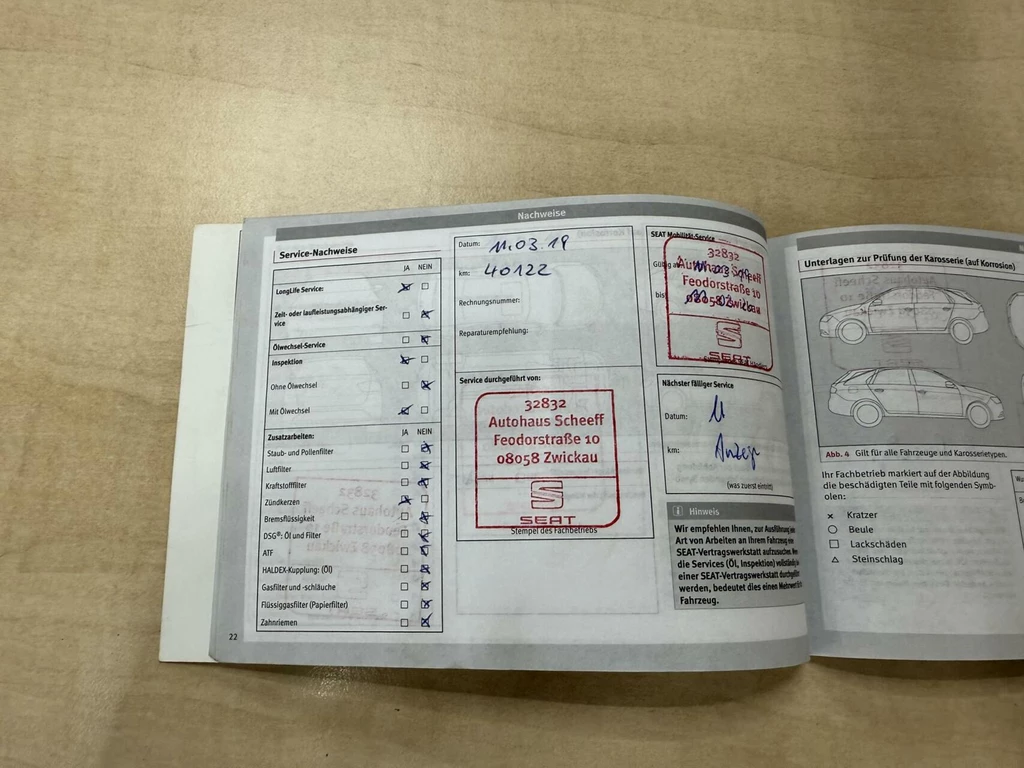 Nachweise
Service-Nachweise
JA NEIN
LongLife Service:
Zeit- oder laufleistungsabhängiger Ser-
vice
Ölwechsel-Service
Inspektion
Ohne Ölwechsel
Mit Ölwechsel
Zusatzarbeiten: JA NEIN
Staub- und Pollenfilter
Luftfilter
Kraftstofffilter
Zündkerzen
Bremsflüssigkeit
DSG®: Öl und Filter
ATF
HALDEX-Kupplung: (Öl)
Gasfilter und -schläuche
Flüssiggasfilter (Papierfilter)
Zahnriemen
22
Datum: 11.03.19
km: 40122
Rechnungsnummer:
Reparaturempfehlung:
Service durchgeführt von:
32832
Autohaus Scheeff
Feodorstraße 10
08058 Zwickau
SEAT
Stempel des Fachbetriebs
SEAT Mobilität-Service
32832
Autohaus Scheeff
Feodorstraße 10
bis
08058 Zwickau
SEAT
Nächster fälliger Service
Datum:
km: Anzeige
(was zuerst eintritt)
Hinweis
Wir empfehlen Ihnen, zur Ausführung
Art von Arbeiten an Ihrem Fahrzeug
SEAT-Vertragswerkstatt aufzusuchen.
die Services (Öl, Inspektion)
einer SEAT-Vertragswerkstatt
werden, bedeutet dies einen
Fahrzeug.
Unterlagen zur Prüfung der Karosserie (auf Korrosion)
Abb. 4 Gilt für alle Fahrzeuge und Karosserietypen.
Ihr Fachbetrieb markiert auf der Abbildung
die beschädigten Teile mit folgenden Symb-
olen:
Kratzer
Beule
Lackschäden
Steinschlag